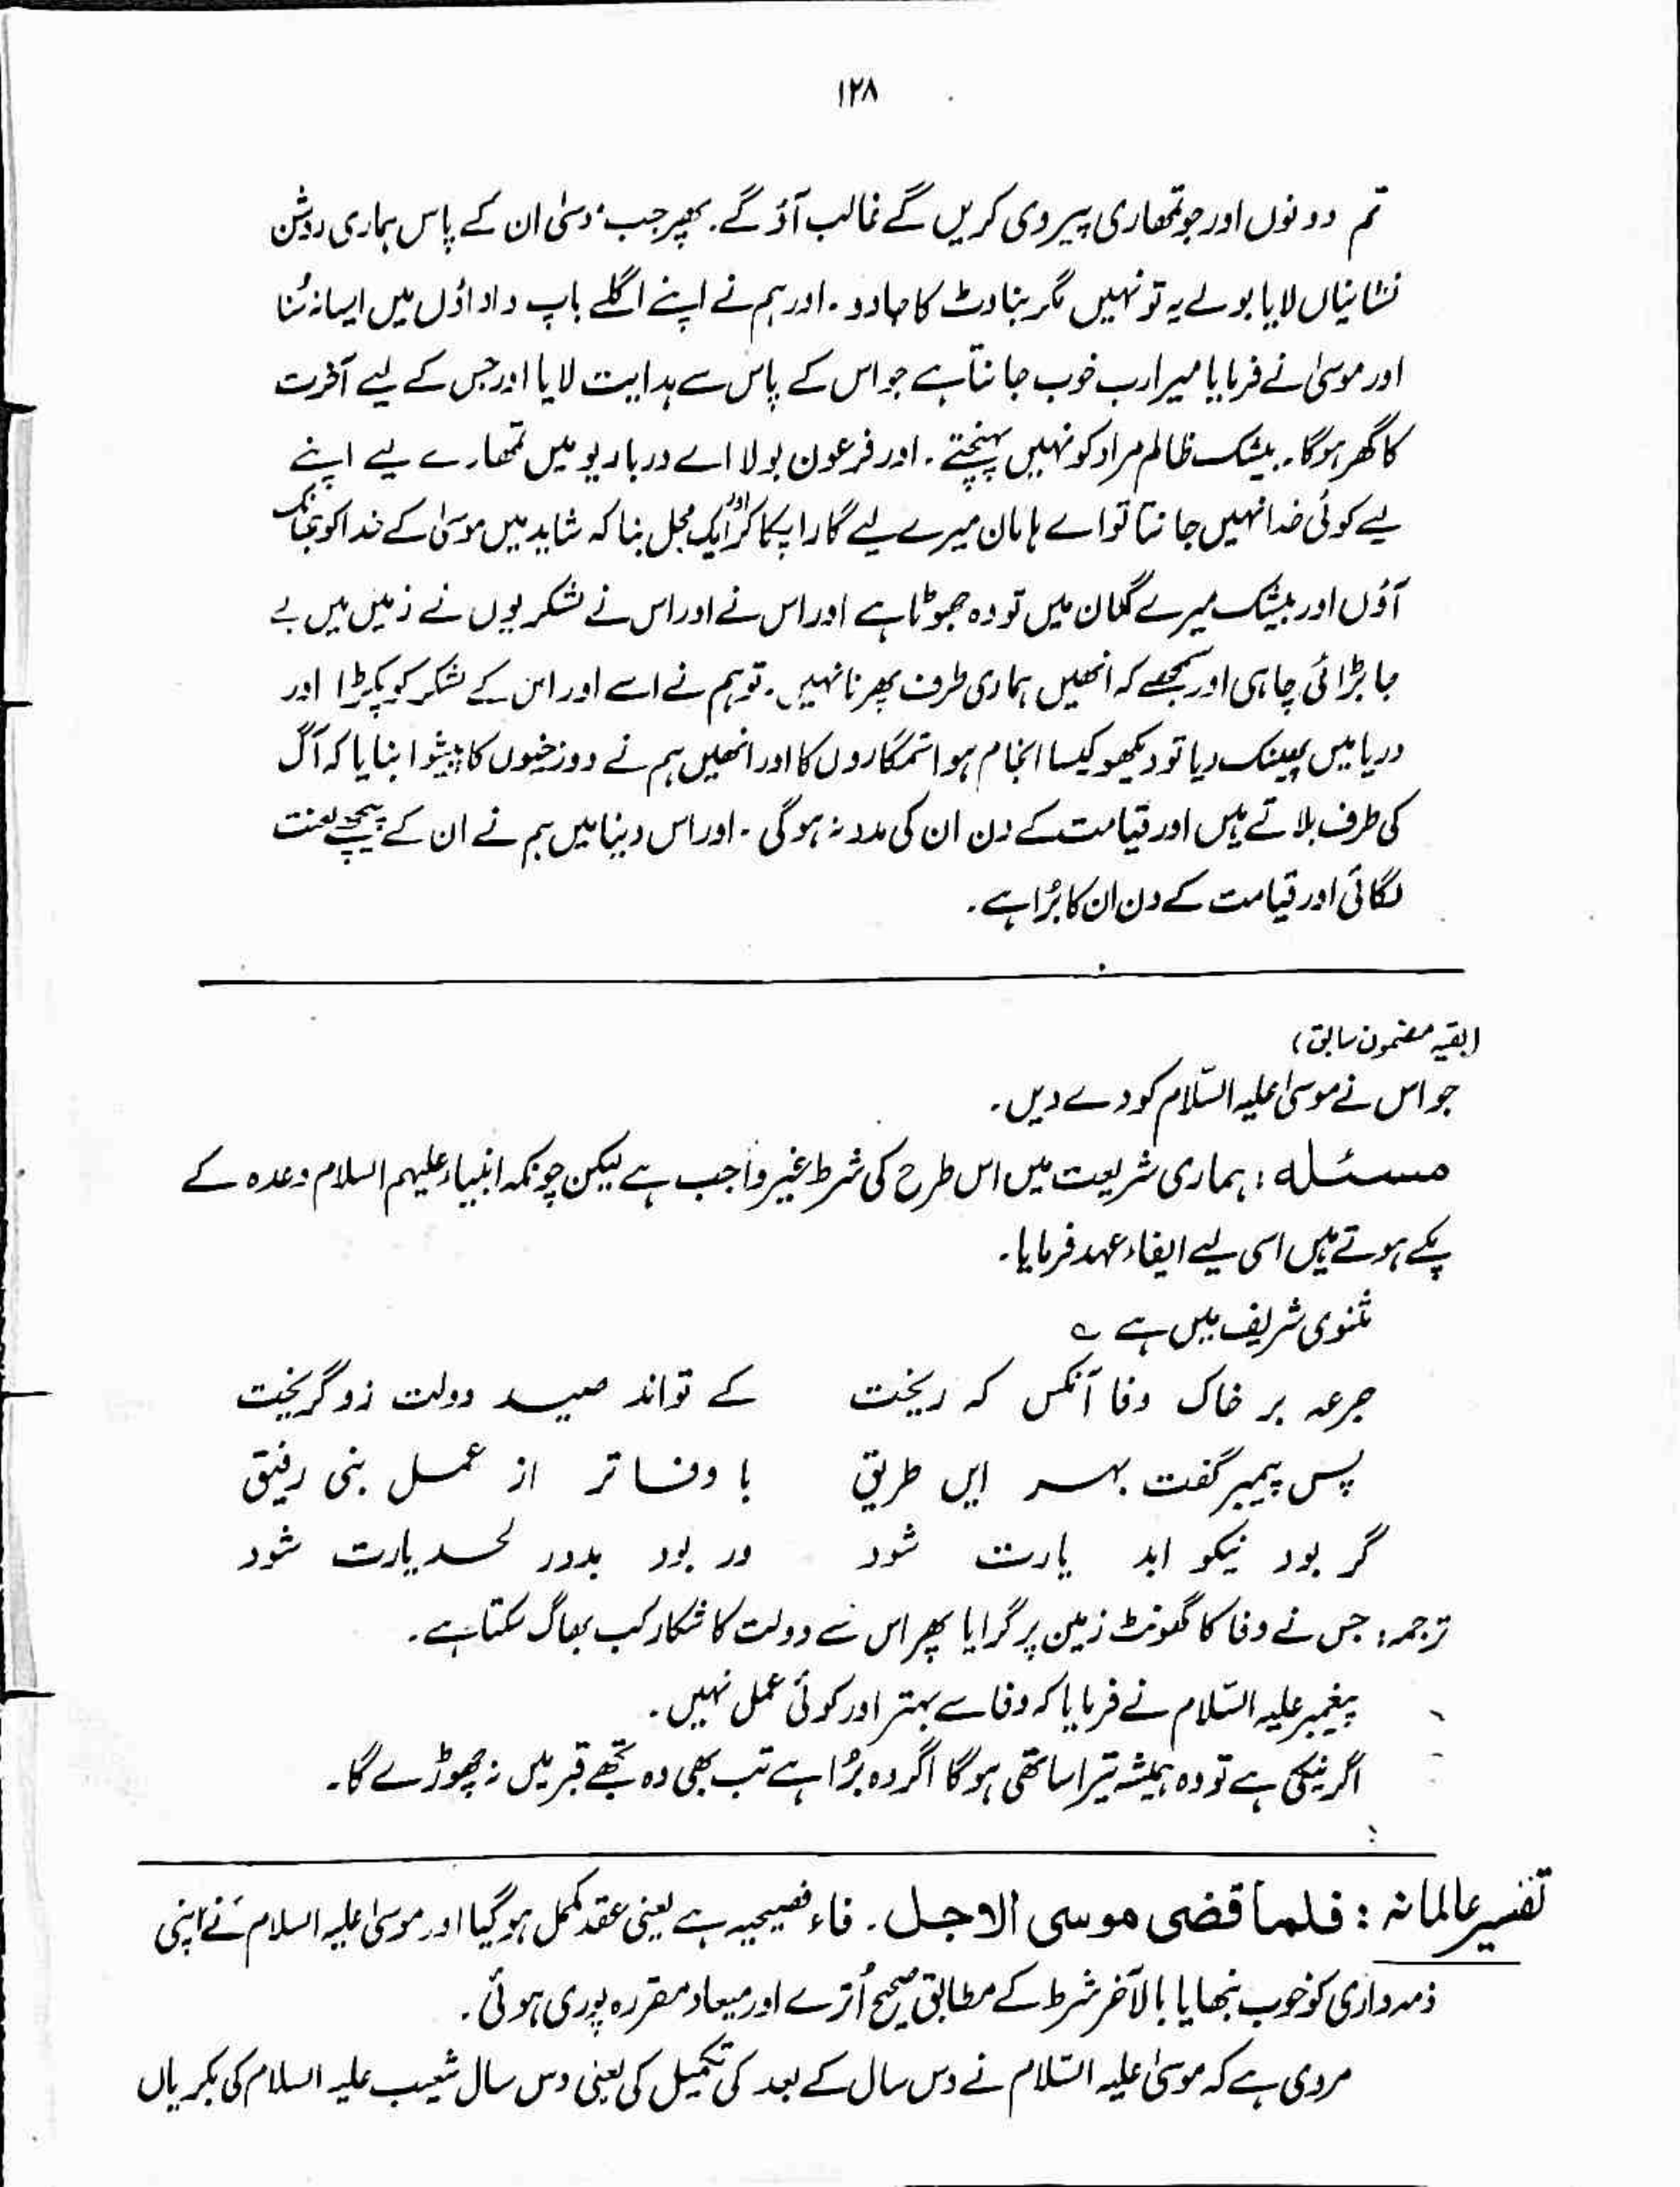 ۱۲۸
تم دونوں اور جو تمھاری پیروی کریں گے غالب آؤ گے۔ پھر جب موسیٰ ان کے پاس ہماری روشن
نشانیاں لایا بولے یہ تو نہیں مگر بناوٹ کا جادو۔ اور ہم نے اپنے اگلے باپ داداؤں میں ایسا نہ سُنا
اور موسیٰ نے فرمایا میرا رب خوب جانتا ہے جو اس کے پاس سے ہدایت لایا اور جس کے لیے آخرت
کا گھر ہوگا۔ بیشک ظالم مراد کو نہیں پہنچتے۔ اور فرعون بولا اے درباریو میں تمھارے لیے اپنے
لیے کوئی خدا نہیں جانتا تو اے ہامان میرے لیے گارا پکا کر اور ایک محل بنا کہ شاید میں موسیٰ کے خدا کو جھانک
آؤں اور بیشک میرے گمان میں تو وہ جھوٹا ہے اور اس نے اور اس نے لشکریوں نے زمین میں بے
جا بڑائی چاہی اور سمجھے کہ انھیں ہماری طرف پھرنا نہیں۔ تو ہم نے اسے اور اس کے لشکر کو پکڑا اور
دریا میں پھینک دیا تو دیکھو کیسا انجام ہوا ستمگاروں کا اور انھیں ہم نے دوزخیوں کا پیشوا بنایا کہ آگ
کی طرف بلاتے ہیں اور قیامت کے دن ان کی مدد نہ ہوگی۔ اور اس دنیا میں ہم نے ان کے پیچھے لعنت
لگائی اور قیامت کے دن ان کا بُرا ہے۔
(بقیہ مضمون سابق)
جو اس نے موسیٰ علیہ السّلام کو دے دیں۔
مسئلہ: ہماری شریعت میں اس طرح کی شرط غیر واجب ہے لیکن چونکہ انبیاء علیہم السلام وعدہ کے
پکے ہوتے ہیں اسی لیے ایفاء عہد فرمایا۔
مثنوی شریف میں ہے ؎
جرعہ بر خاک وفا آنکس کہ ریخت کے تواند صید دولت زو گریخت
پس پیمبر گفت بہر ایں طریق با وفا تر از عمل نبی رفیق
گر بود نیکو ابد یارت شود ور بود بد در لحد یارت شود
ترجمہ: جس نے وفا کا گھونٹ زمین پر گرایا پھر اس سے دولت کا شکار کب بھاگ سکتا ہے۔
پیغمبر علیہ السّلام نے فرمایا کہ وفا سے بہتر اور کوئی عمل نہیں۔
اگر نیکی ہے تو وہ ہمیشہ تیرا ساتھی ہوگا اگر وہ بُرا ہے تب بھی وہ تجھے قبر میں نہ چھوڑے گا۔
تفسیر عالمانہ: فلما قضی موسی الاجل۔ فاء فصیحیہ ہے یعنی عقد مکمل ہوگیا اور موسیٰ علیہ السلام نے اپنی
ذمہ داری کو خوب نبھایا بالآخر شرط کے مطابق صحیح اُترے اور میعاد مقررہ پوری ہوئی۔
مروی ہے کہ موسیٰ علیہ السّلام نے دس سال کے بعد کی تکمیل کی یعنی دس سال شعیب علیہ السلام کی بکریاں